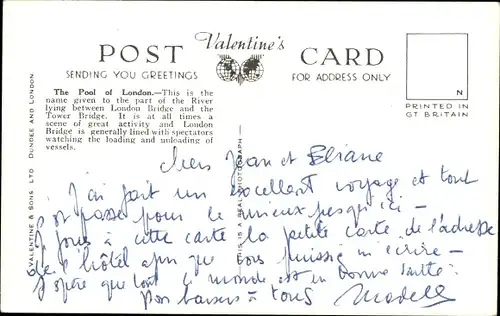 POST Valentine's CARD
SENDING YOU GREETINGS
FOR ADDRESS ONLY
The Pool of London.—This is the
name given to the part of the River
lying between London Bridge and the
Tower Bridge. It is at all times a
scene of great activity and London
Bridge is generally lined with spectators
watching the loading and unloading of
vessels.
N
PRINTED IN
GT BRITAIN
VALENTINE & SONS LTD DUNDEE AND LONDON
THIS IS A REAL PHOTOGRAPH
Chers Jean et Eliane
J'ai fait un excellent voyage et tout
s'est passé pour le mieux jusqu'ici —
je joins à cette carte la petite carte de l'adresse
de l'hôtel afin que vous puissiez m'écrire —
J'espère que tout le monde est en bonne santé.
Bons baisers à tous